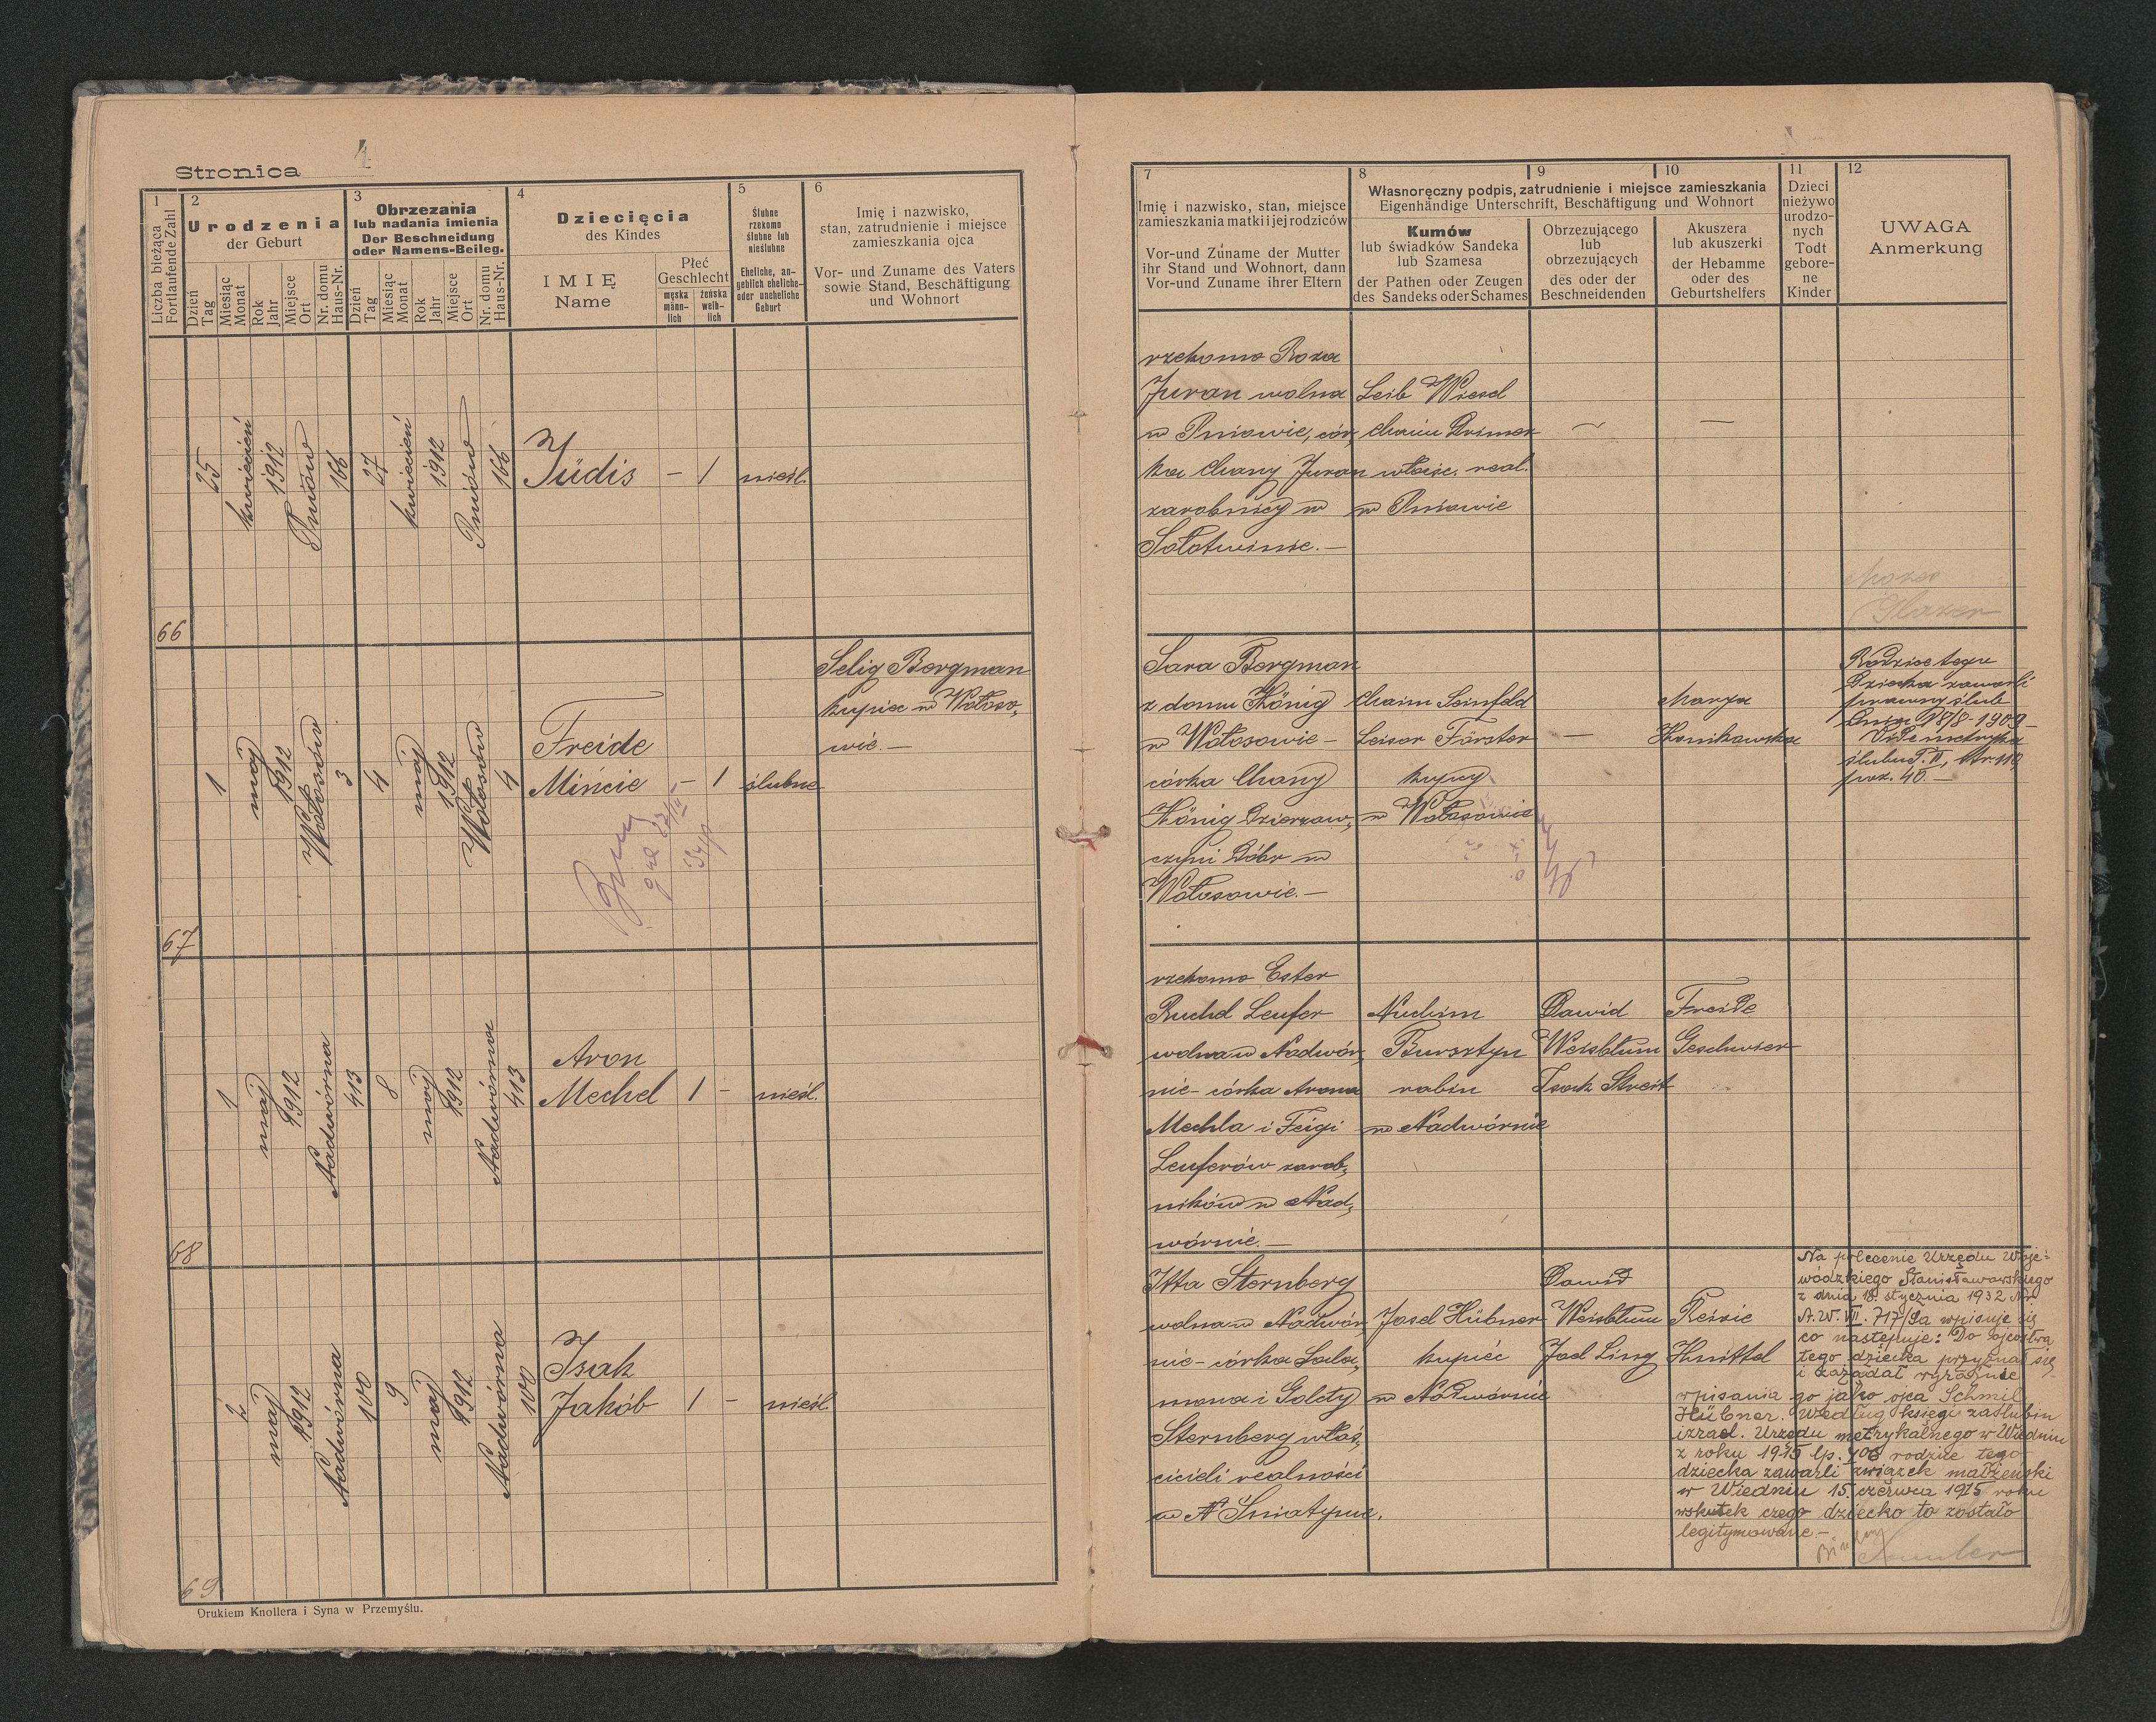 Stronica 4
1
Liczba bieżąca
Fortlaufende Zahl
2
Urodzenia
der Geburt
Dzień
Tag
Miesiąc
Monat
Rok
Jahr
Miejsce
Ort
Nr. domu
Haus-Nr.
3
Obrzezania
lub nadania imienia
Der Beschneidung
oder Namens-Beileg.
Dzień
Tag
Miesiąc
Monat
Rok
Jahr
Miejsce
Ort
Nr. domu
Haus-Nr.
4
Dziecięcia
des Kindes
IMIĘ
Name
Płeć
Geschlecht
męska
männ-
lich
żeńska
weib-
lich
5
Ślubne
rzekomo
ślubne lub
nieślubne
Eheliche, an-
geblich eheliche
oder uneheliche
Geburt
6
Imię i nazwisko,
stan, zatrudnienie i miejsce
zamieszkania ojca
Vor- und Zuname des Vaters
sowie Stand, Beschäftigung
und Wohnort
7
Imię i nazwisko, stan, miejsce
zamieszkania matki i jej rodziców
Vor-und Zuname der Mutter
ihr Stand und Wohnort, dann
Vor-und Zuname ihrer Eltern
8
9
10
Własnoręczny podpis, zatrudnienie i miejsce zamieszkania
Eigenhändige Unterschrift, Beschäftigung und Wohnort
Kumów
lub świadków Sandeka
lub Szamesa
der Pathen oder Zeugen
des Sandeks oder Schames
Obrzezującego
lub
obrzezujących
des oder der
Beschneidenden
Akuszera
lub akuszerki
der Hebamme
oder des
Geburtshelfers
11
Dzieci
nieżywo
urodzo-
nych
Todt
gebore-
ne
Kinder
12
UWAGA
Anmerkung
66
25
kwiecień
1912
Pniów
166
27
kwiecień
1912
Pniów
166
Jüdis
- 1
nieśl.
rzekomo Roza
Juran wolna
w Pniowie, cór,
ka Chany Juran
zarobnicy w
Sołotwinie.-
Leib Wiesel
Chaim Drimer
właśc. real.
w Pniowie
-
-
Mozes
Glazer
67
1
maj
1912
Wołosów
3
4
maj
1912
Wołosów
4
Freide
Mincie
- 1
ślubne
Selig Bergman
kupiec w Wołoso,
wie.-
Sara Bergman
z domu König
w Wołosowie-
córka Chany
König dzierżaw,
czyni dóbr w
Wołosowie.-
Chaim Seinfeld
Leiser Förster
kupcy
w Wołosowie
-
Marya
Rodzice tego
dziecka zawarli
prawny ślub
Vide metryka
ślubu T. II, str. 110,
poz. 40.-
68
1
maj
1912
Nadwórna
413
8
maj
1912
Nadwórna
413
Aron
Mechel
1 -
nieśl.
rzekomo Ester
Ruchel Leufer
wolna w Nadwór,
nie- córka Arona
Mechla i Feigi
Leuferów zarob,
ników w Nad,
wórnie.-
Nuchim
Bursztyn
rabin
w Nadwórnie
Dawid
Weisblum
Isak Streit
Freide
Geschwier
69
2
maj
1912
Nadwórna
100
9
maj
1912
Nadwórna
100
Isak
Jakób
1 -
nieśl.
Itta Sternberg
wolna w Nadwór,
nie- córka Sala,
mona i Goldy
Sternberg właś,
cicieli realności
w N Śniatynie.
Josel Hübner
kupiec
w Nadwórnie
Dawid
Weisblum
Joel Ling
Reisie
Knittel
Na polecenie Urzędu Woje=
wódzkiego Stanisławowskiego
z dnia 18. stycznia 1932 Nr.
A.W. VII. 717/2a wpisuje się
co następuje: Do ojcostwa
tego dziecka przyznał się
i zażądał wyraźnie
wpisania go jako ojca Schmil
Hübner. Według księgi zaślubin
izrael. Urzędu metrykalnego w Wiedniu
z roku 1915 lp. 406 rodzice tego
dziecka zawarli związek małżeński
w Wiedniu 15. czerwca 1915 roku
wskutek czego dziecko to zostało
legitymowane.-
Drukiem Knollera i Syna w Przemyślu.